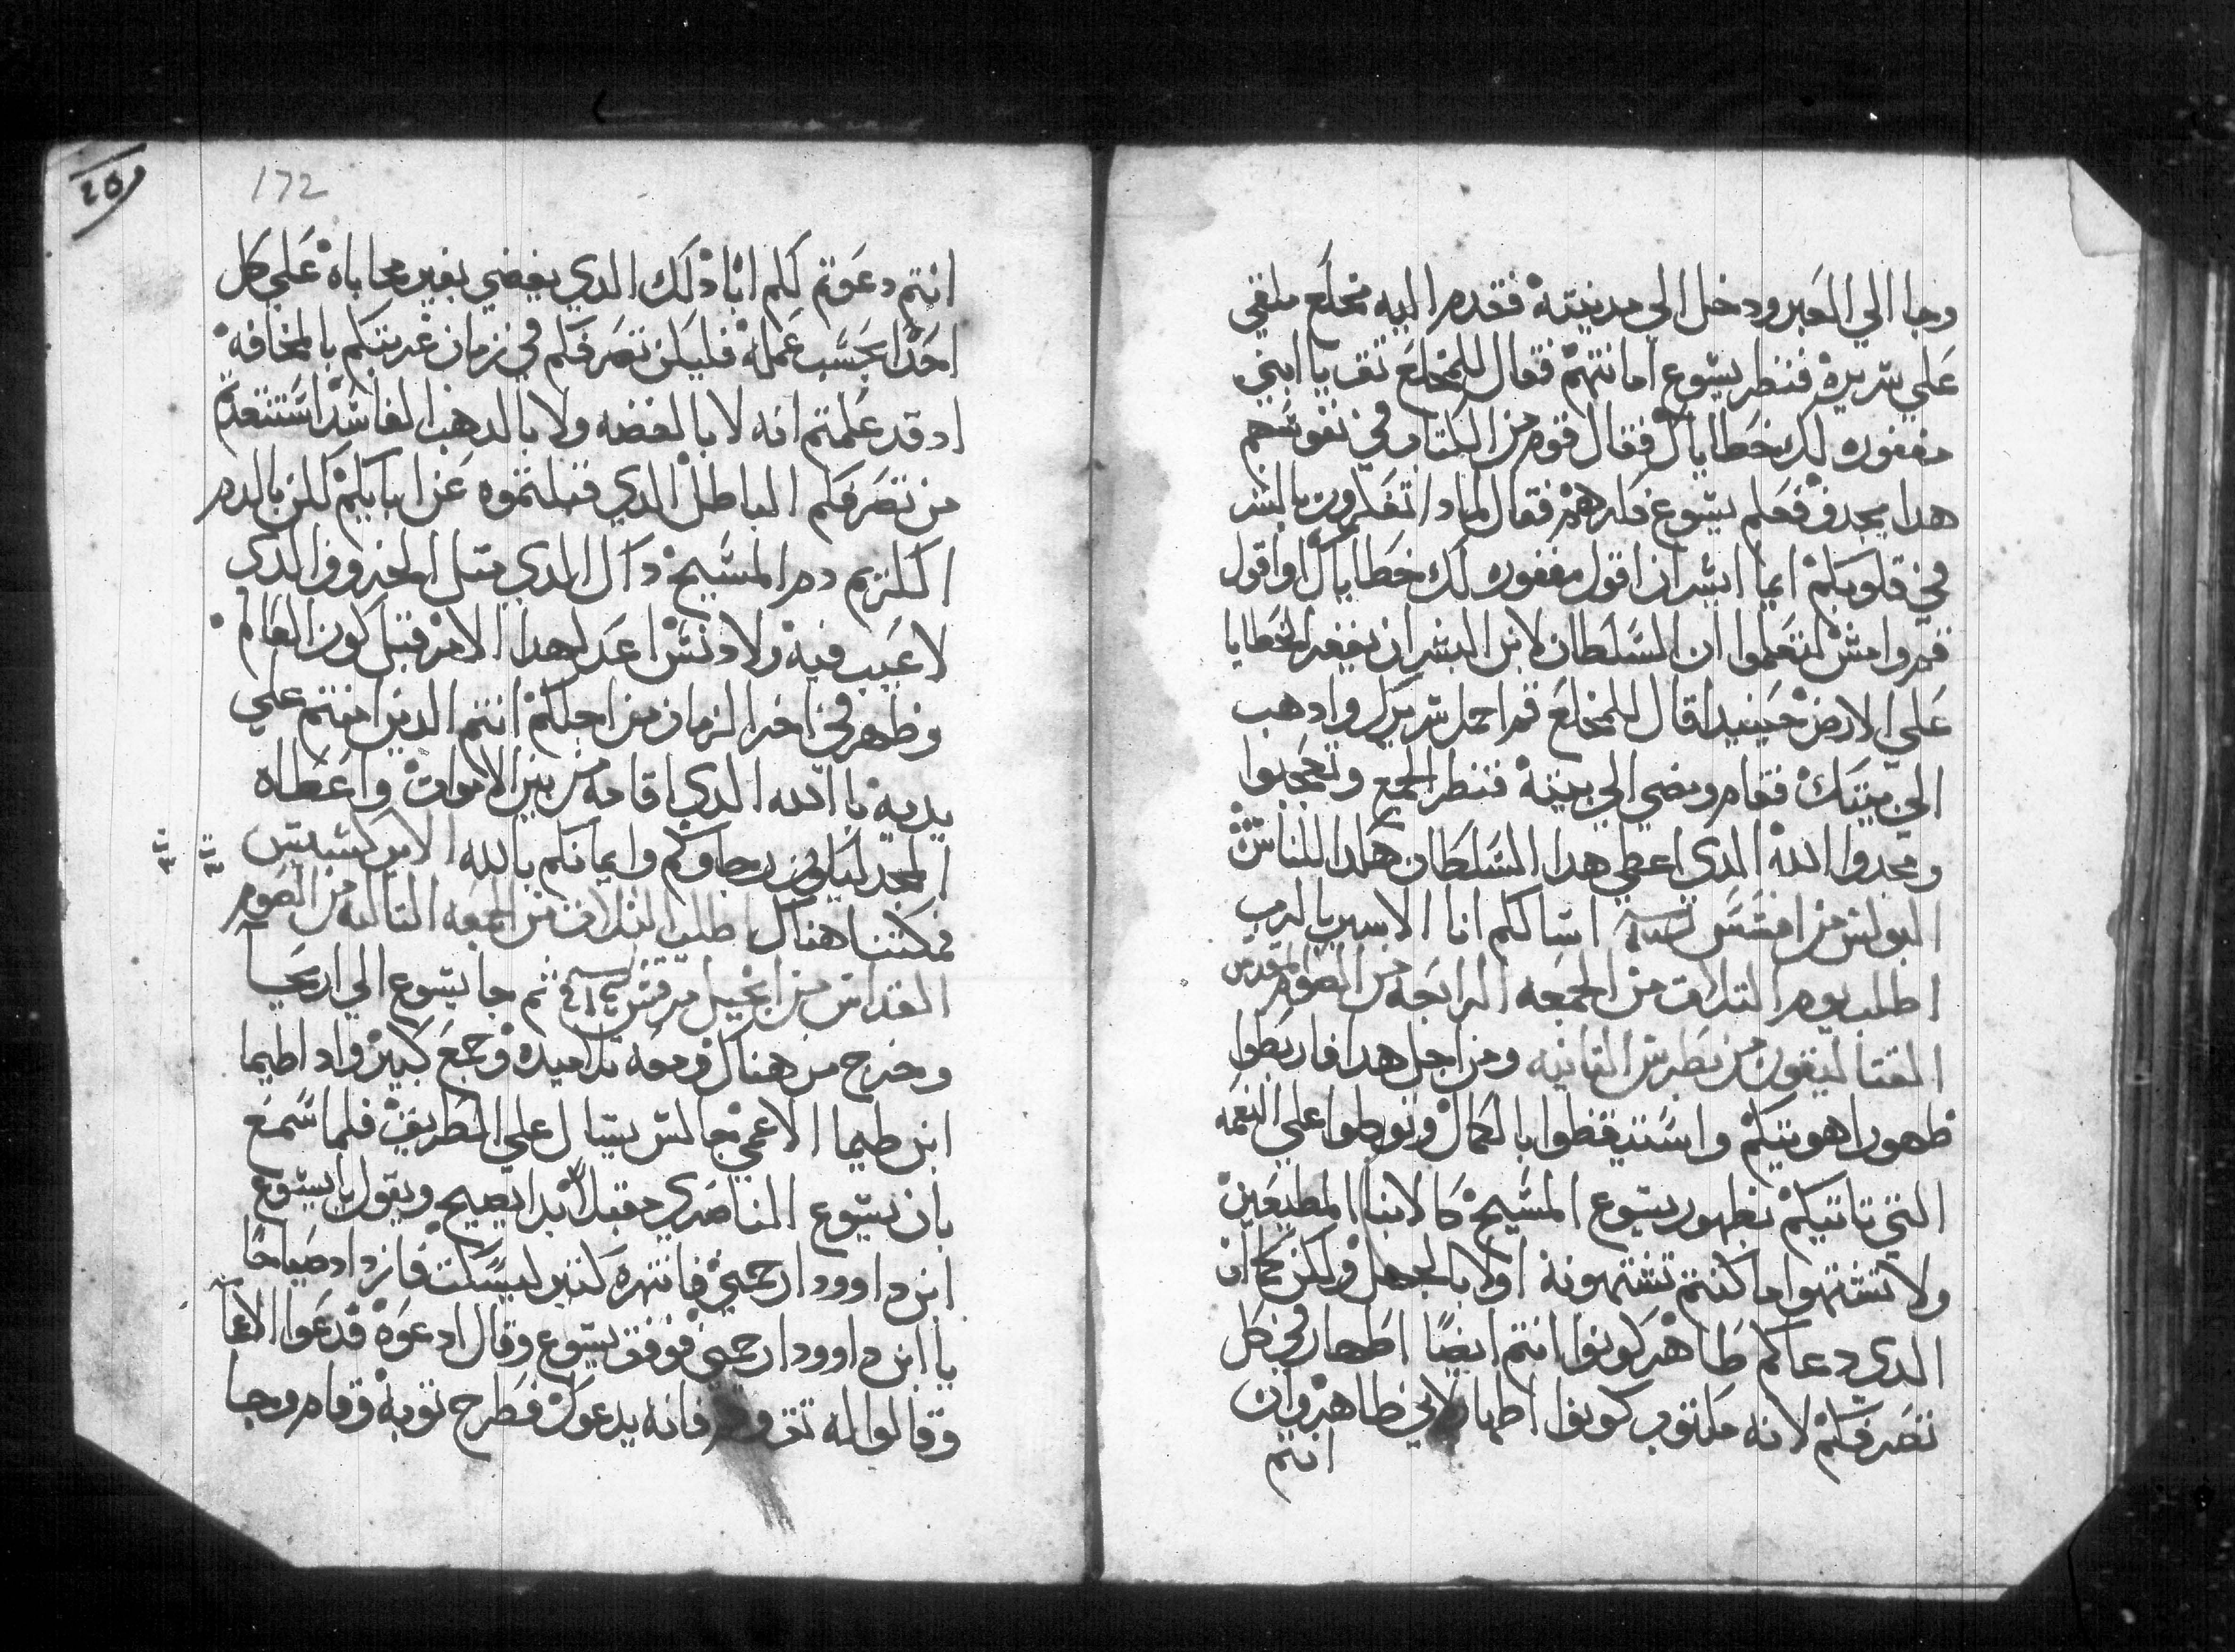 وجا الي العبر ودخل الي مدينته فقدم اليه مخلع ملقي
علي سريره فنظر يسوع امانتهم فقال للمخلع تق يا ابني
مغفوره لك خطاياك فقال قوم من الكتاب في نفوسهم
هدا يجدف فعلم يسوع فكرهم فقال لمادا تفكرون بالشر
في قلوبكم ايما ايسر ان اقول مغفوره لك خطاياك او اقول
قم وامش لتعلموا ان السلطان لابن البشر ان يغفر الخطايا
علي الارض حينيدا قال للمخلع قم احمل سريرك وادهب
الي بيتك فقام ومضي الي بيته فنظر الجمع وتعجبوا
ومجدوا الله الدي اعطي هدا السلطان هكدا للناس
البولس من افسس اسالكم انا الاسير بالرب
اطلب يوم التلات من الجمعه الرابعه من الصوم المقدس
القتاليقون من بطرس التانيه ومن اجل هدا فاربطوا
ظهور اهويتكم واستيقظوا بالكمال وتوكلوا علي النعمه
التي تاتيكم بظهور يسوع المسيح كالابنا المطيعين
ولا تشتهوا ما كنتم تشتهونه اولا بالجهل ولكن كما ان
الدي دعاكم طاهر كونوا انتم ايضا اطهار في كل
تصرفكم لانه مكتوب كونوا اطهار لاني طاهر وان
انتم
20
172
انتم دعوتم لكم ابا دلك الدي يقضي بغير محاباه علي كل
احدا بحسب عمله فليكن تصرفكم في زمان غربتكم بالمخافه
اد قد علمتم انه لا بالفضه ولا بالدهب الفاسد استنقدتم
من تصرفكم الباطل الدي قبلتموه عن ابايكم لكن بالدم
الكريم دم المسيح داك الدي متل الخروف الدى
لا عيب فيه ولا دنس اعد لهدا الامر قبل كون العالم
وظهر في اخر الزمان من اجلكم انتم الدين امنتم علي
يديه با الله الدي اقامه من بين الاموات واعطاه
المجد ليكون رجاوكم وايمانكم بالله الابركسيس
فمكتنا هناك اطلب التلات من الجمعه التالته من الصوم
القداس من انجيل مرقس ثم جا يسوع الي اريحا
وخرج من هناك ومعه تلاميده وجمع كبير واد اطيما
ابن طيما الاعمي جالس يسال علي الطريق فلما سمع
بان يسوع الناصري مقبلا بدا يصيح ويقول يا يسوع
ابن داوود ارحمني فانتهره كتير ليسكت فازداد صياحا
يا ابن داوود ارحمني فوقف يسوع وقال ادعوه فدعوا الاعما
وقالوا له تق وقم فانه يدعوك فطرح توبه وقام وجا